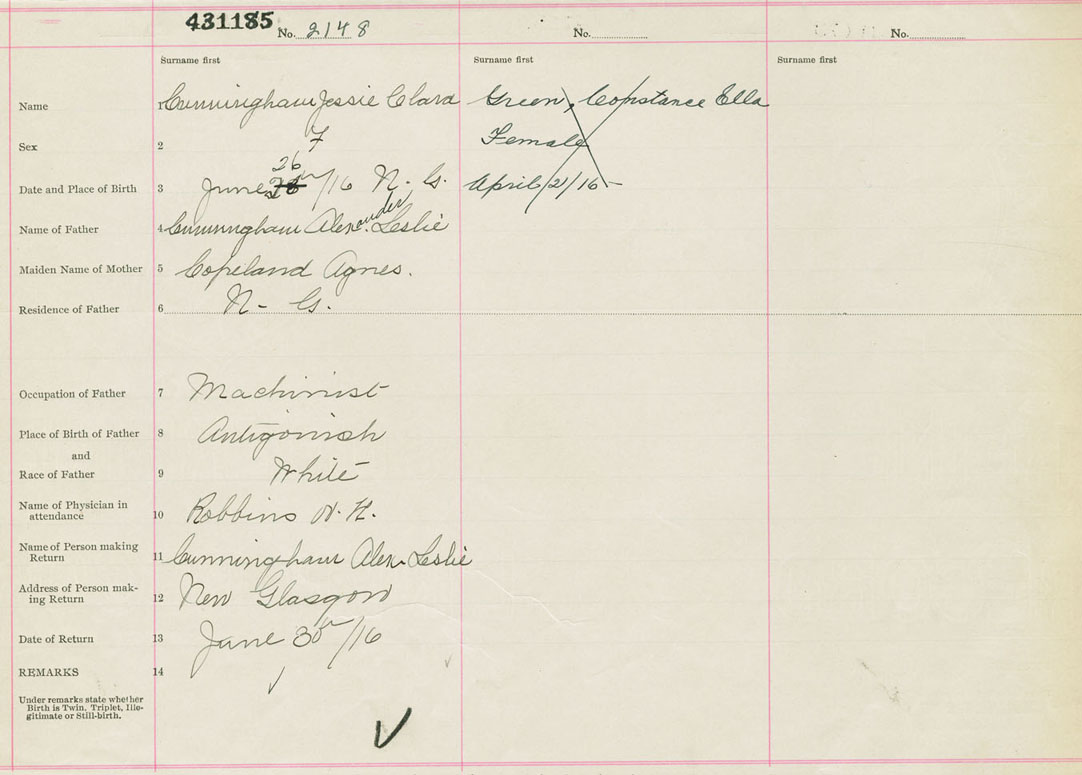 431185
No. 2148 No. No.
Surname first Surname first Surname first
Name 1 Cunningham Jessie Clara Green, Constance Ella
Sex 2 F Female
26
Date and Place of Birth 3 June th/16 N. G. April 21/16 -
Name of Father 4 Cunningham Alexander Leslie
Maiden Name of Mother 5 Copeland Agnes.
Residence of Father 6 N- G.
Occupation of Father 7 Machinist
Place of Birth of Father 8 Antigonish
and
Race of Father 9 White
Name of Physician in
attendance 10 Robbins W. H.
Name of Person making
Return 11 Cunningham Alex. Leslie
Address of Person mak-
ing Return 12 New Glasgow
Date of Return 13 June 30th/16
REMARKS 14
Under remarks state whether
Birth is Twin, Triplet, Ille-
gitimate or Still-birth.